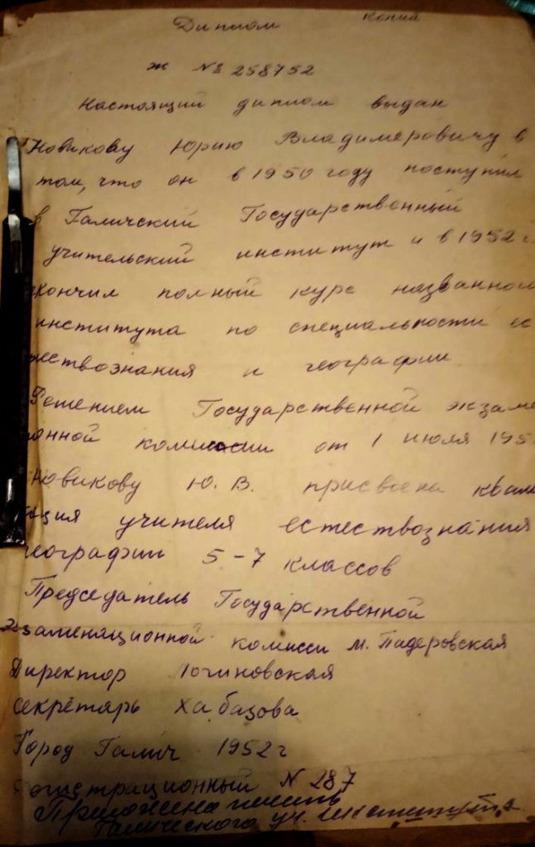 Диплом копия
Ж № 258752
Настоящий диплом выдан
Новикову Юрию Владимеровичу в
том, что он в 1950 году поступил
в Галичский Государственный
учительский институт и в 1952 г
окончил полный курс названного
института по специальности ес
тествознания и географии
Решением Государственной экзаме
онной комиссии от 1 июля 195
Новикову Ю. В. присвоена квали
кация учителя естествознания
географии 5-7 классов
Председатель Государственной
экзаменационной комисси М.
Директор
секретарь Хабазова
Город Галич 1952 г
регистрационный N 287
Приложена печать
Галичского уч. института